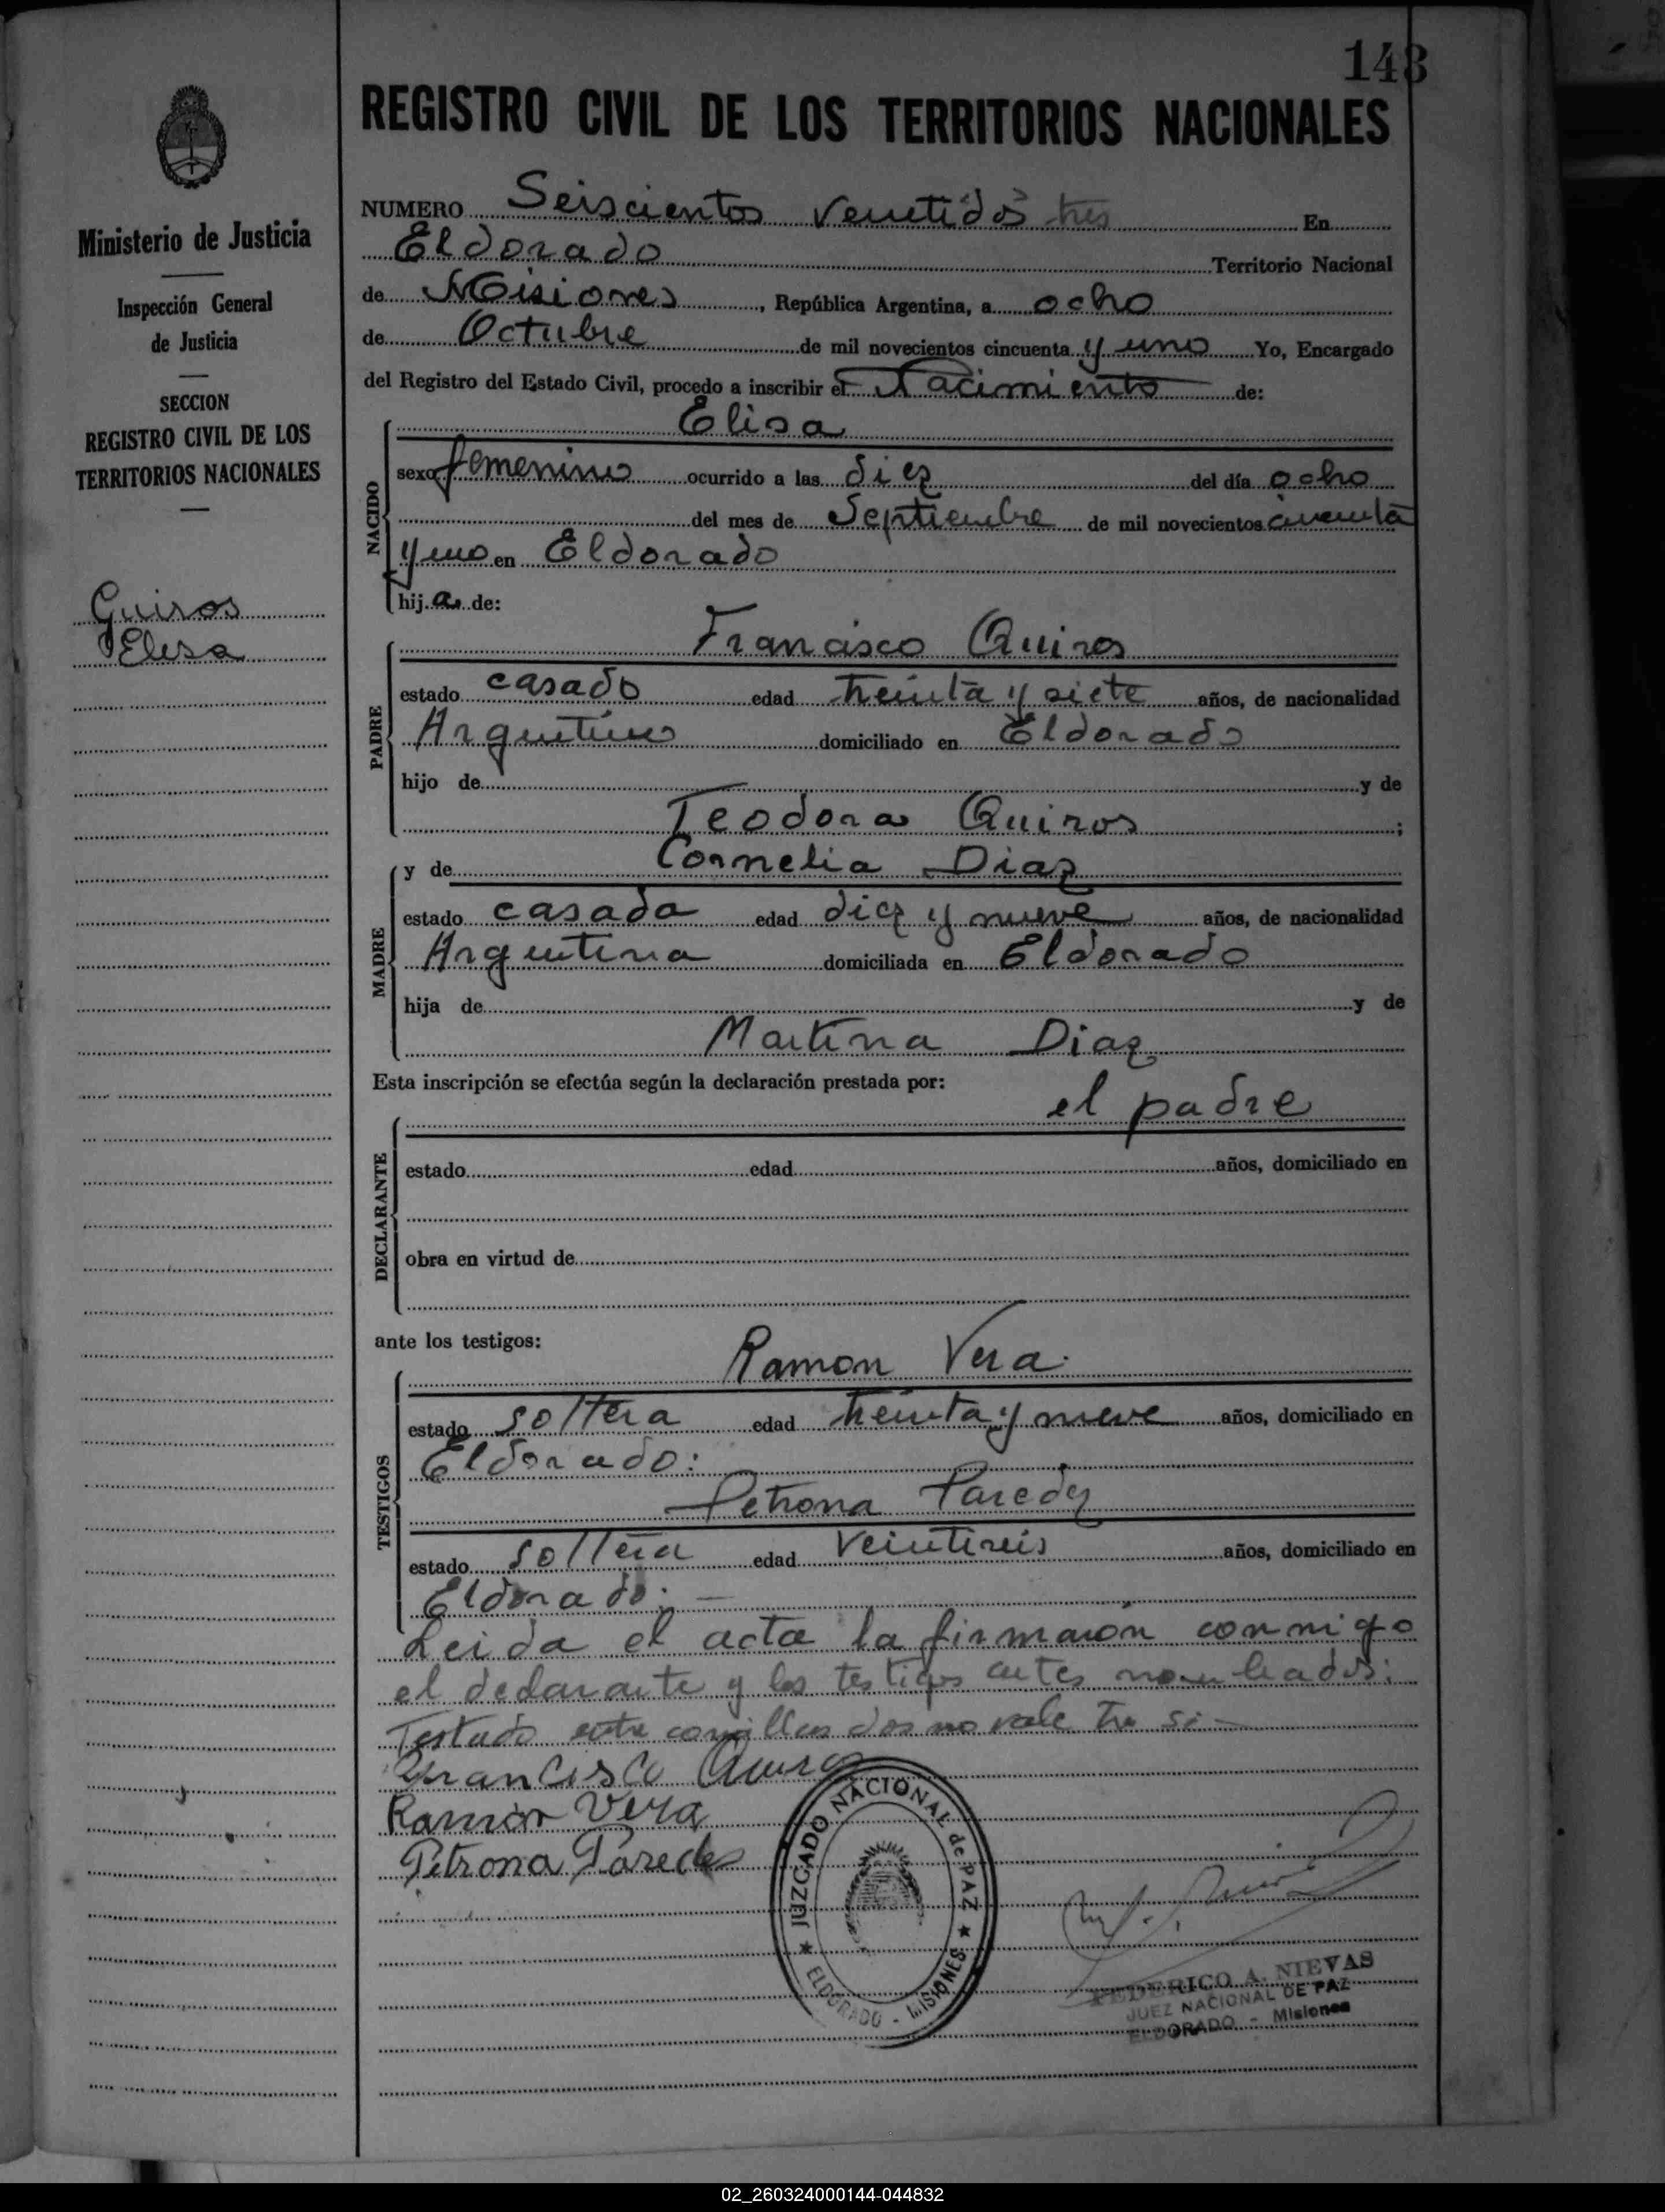 143
REGISTRO CIVIL DE LOS TERRITORIOS NACIONALES
Ministerio de Justicia
Inspección General
de Justicia
SECCION
REGISTRO CIVIL DE LOS
TERRITORIOS NACIONALES
Quiros
Elisa
NUMERO Seiscientos veintidos tres En
Eldorado Territorio Nacional
de Misiones, República Argentina, a ocho
de Octubre de mil novecientos cincuenta y uno Yo, Encargado
del Registro del Estado Civil, procedo a inscribir el Nacimiento de:
Elisa
NACIDO
sexo femenino ocurrido a las diez del día ocho
del mes de Septiembre de mil novecientos cincuenta
y uno en Eldorado
hij a de:
Francisco Quiros
PADRE
estado casado edad treinta y siete años, de nacionalidad
Argentino domiciliado en Eldorado
hijo de y de
Teodora Quiros ;
y de Cornelia Diaz
MADRE
estado casada edad diez y nueve años, de nacionalidad
Argentina domiciliada en Eldorado
hija de y de
Martina Diaz
Esta inscripción se efectúa según la declaración prestada por:
el padre
DECLARANTE
estado edad años, domiciliado en
obra en virtud de
ante los testigos:
Ramon Vera.
TESTIGOS
estado soltera edad treinta y nueve años, domiciliado en
Eldorado:
Petrona Paredes
estado soltera edad veintiseis años, domiciliado en
Eldorado: —
Leida el acta la firmaron conmigo
el declarante y los testigos antes nombrados:
Testado entre comillas dos no vale tres si —
Francisco Quiros
Ramon Vera
Petrona Paredes
JUZGADO NACIONAL de PAZ
ELDORADO - MISIONES
FEDERICO A. NIEVAS
JUEZ NACIONAL DE PAZ
ELDORADO - Misiones
02_260324000144-044832